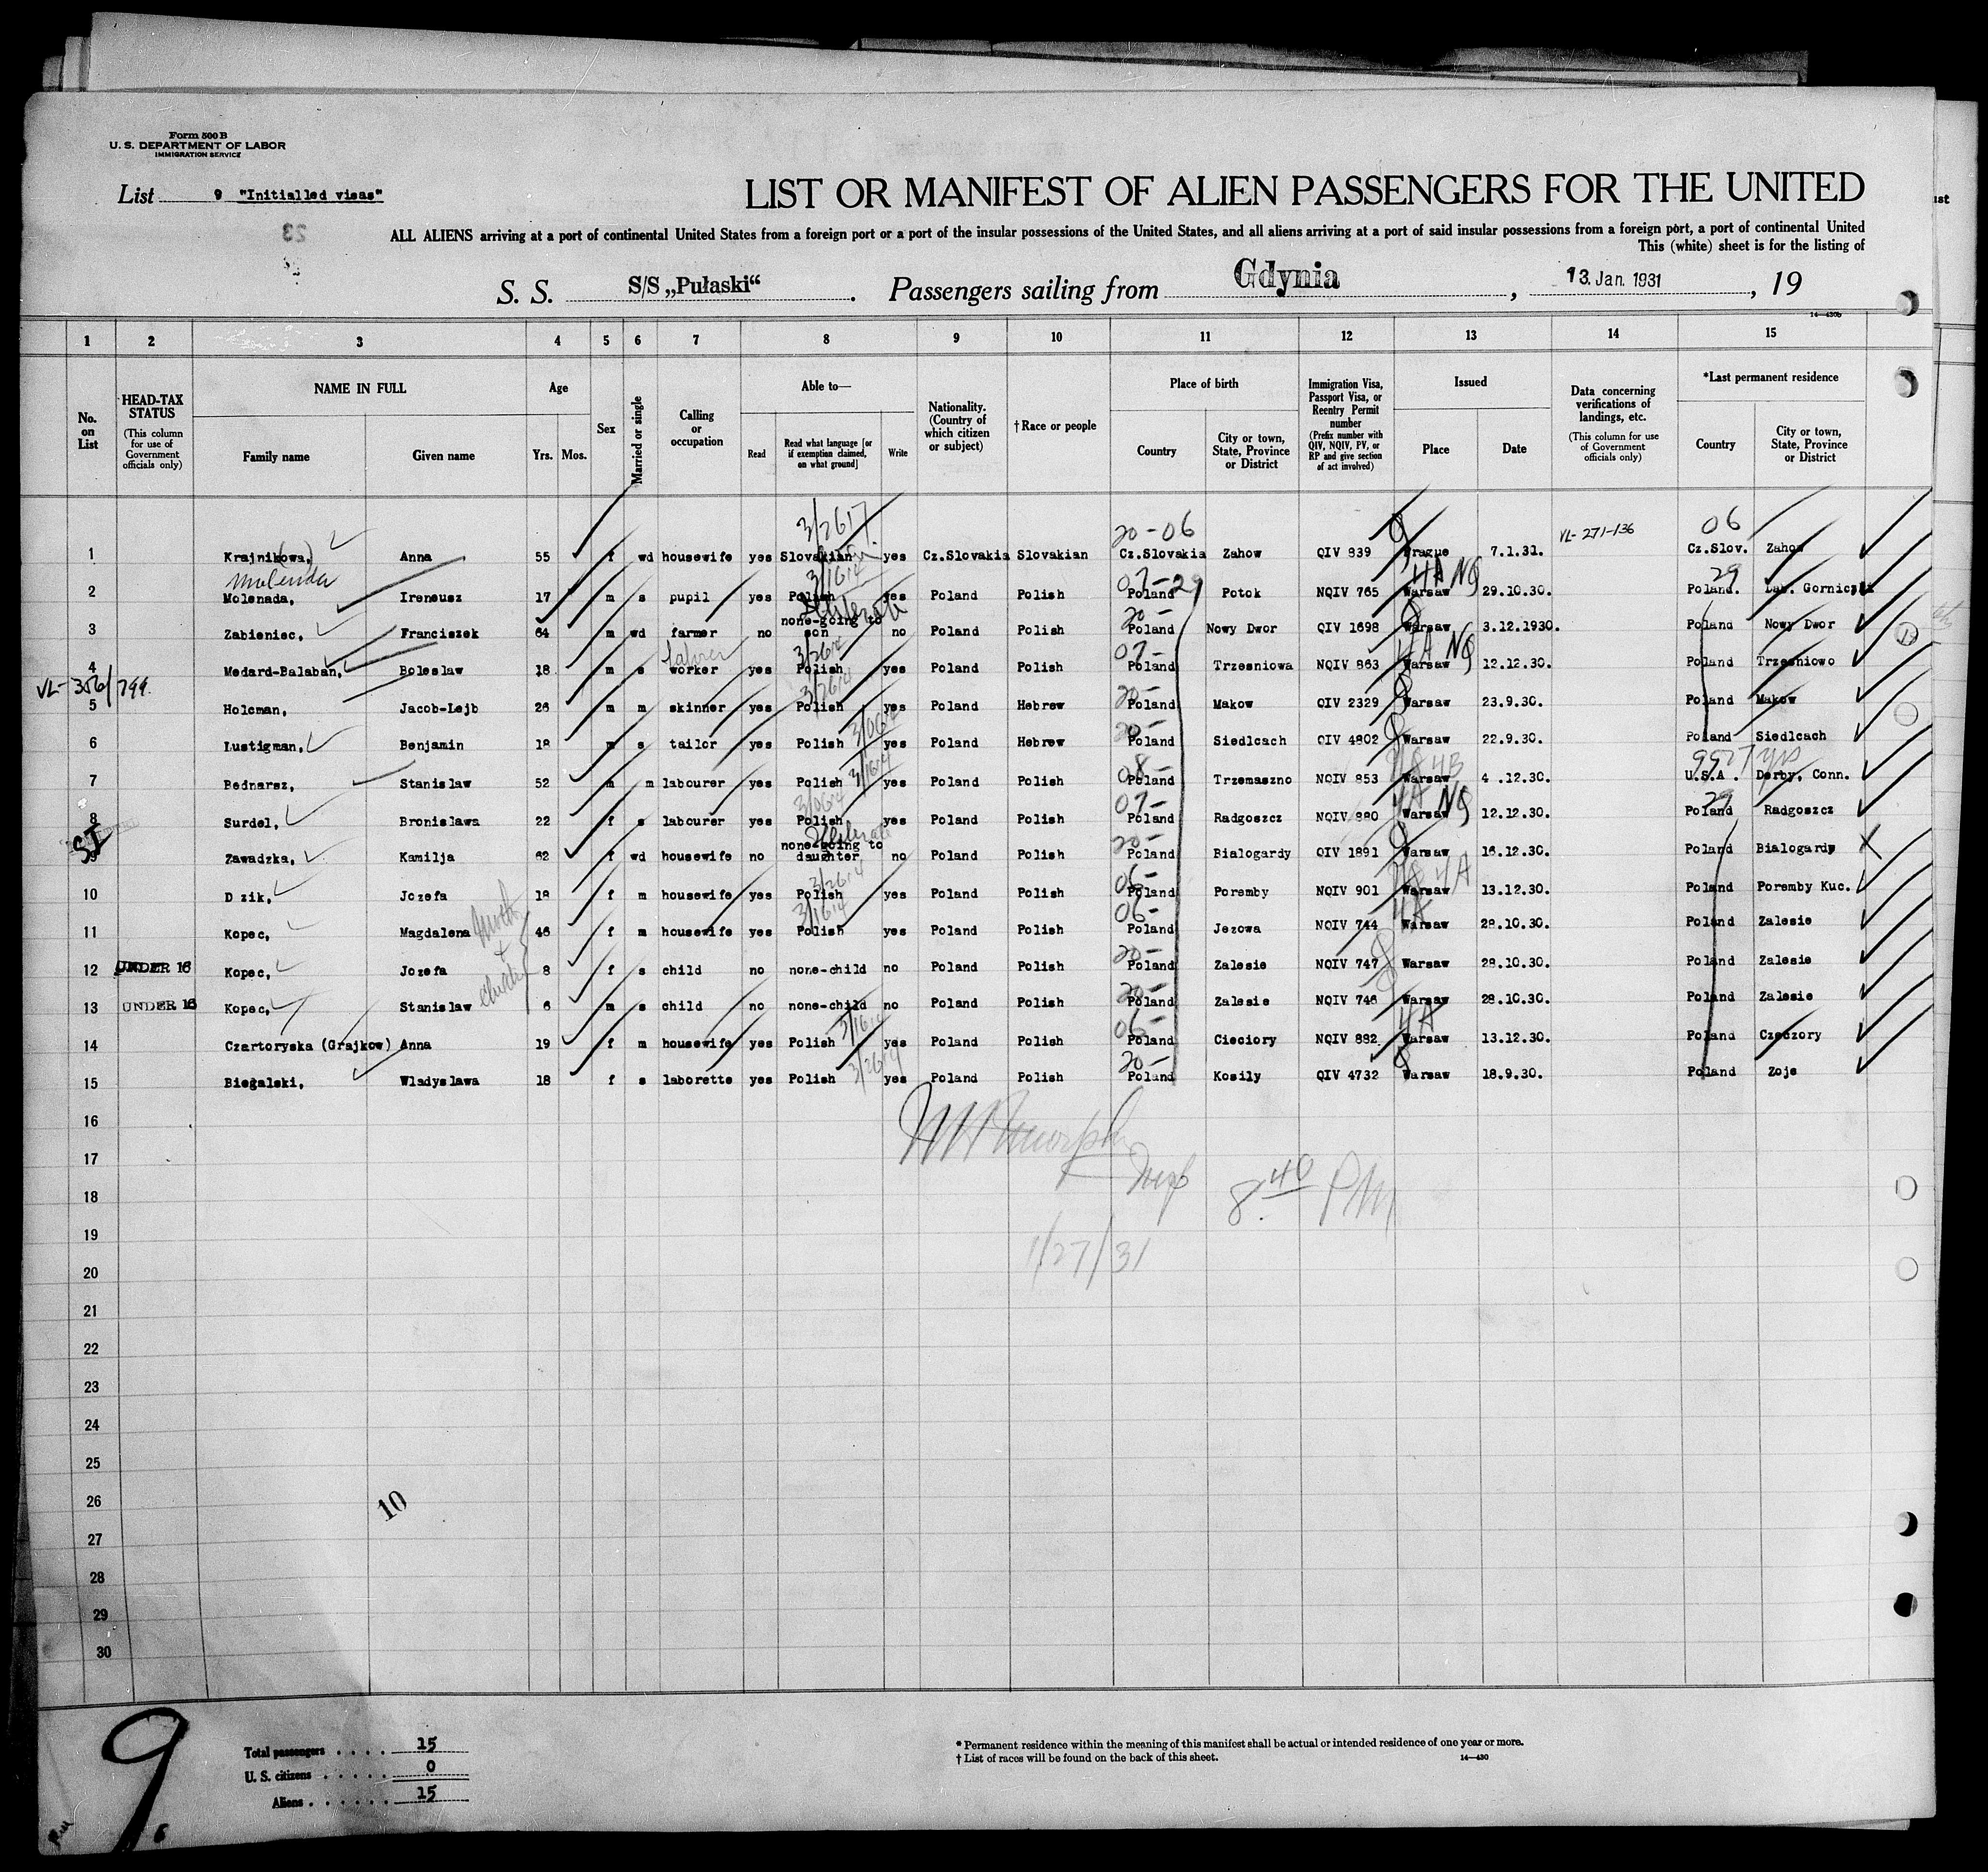 Form 500 B
U. S. DEPARTMENT OF LABOR
IMMIGRATION SERVICE
List 9 "Initialled visas"
LIST OR MANIFEST OF ALIEN PASSENGERS FOR THE UNITED
23
ALL ALIENS arriving at a port of continental United States from a foreign port or a port of the insular possessions of the United States, and all aliens arriving at a port of said insular possessions from a foreign port, a port of continental United
This (white) sheet is for the listing of
S. S. S/S „Pułaski“ . Passengers sailing from Gdynia , 13. Jan. 1931 , 19
14—430b
1 2 3 4 5 6 7 8 9 10 11 12 13 14 15
No. on List
HEAD-TAX STATUS (This column for use of Government officials only)
NAME IN FULL Family name Given name
Age Yrs. Mos.
Sex
Married or single
Calling or occupation
Able to— Read Read what language [or if exemption claimed, on what ground] Write
Nationality. (Country of which citizen or subject)
† Race or people
Place of birth Country City or town, State, Province or District
Immigration Visa, Passport Visa, or Reentry Permit number (Prefix number with QIV, NQIV, PV, or RP and give section of act involved)
Issued Place Date
Data concerning verifications of landings, etc. (This column for use of Government officials only)
*Last permanent residence Country City or town, State, Province or District
3/2617 20-06 VL-271-136 06
1 Krajnik(owa,) Anna 55 f wd housewife yes Slovakian yes Cz.Slovakia Slovakian Cz.Slovakia Zahow QIV 839 Prague 7.1.31. Cz.Slov. Zahow
Molenda 3/1614 07-29 4A NQ 29
2 Molenada, Ireneusz 17 m s pupil yes Polish yes Poland Polish Poland Potok NQIV 765 Warsaw 29.10.30. Poland.
Illiterate 20-
3 Zabieniec, Franciszek 64 m wd farmer no none-going to son no Poland Polish Poland Nowy Dwor QIV 1698 Warsaw 3.12.1930. Poland Nowy Dwor
3/2614 07- 4A NQ
4 Medard-Balaban, Boleslaw 18 m s worker yes Polish yes Poland Polish Poland Trzesniowa NQIV 863 Warsaw 12.12.30. Poland Trzesniowo
VL-356/799 3/2614 20-
5 Holcman, Jacob-Lejb 26 m m skinner yes Polish yes Poland Hebrew Poland Makow QIV 2329 Warsaw 23.9.30. Poland Makow
20-
6 Lustigman, Benjamin 18 m s tailor yes Polish yes Poland Hebrew Poland Siedlcach QIV 4802 Warsaw 22.9.30. Poland Siedlcach
3/1614 08- 4B
7 Bednarsz, Stanislaw 52 m m labourer yes Polish yes Poland Polish Poland Trzemaszno NQIV 853 Warsaw 4 .12.30. U.S.A. Derby, Conn.
07- 4A NQ 29
8 Surdel, Bronislawa 22 f s labourer yes Polish yes Poland Polish Poland Radgoszcz NQIV 880 Warsaw 12.12.30. Poland Radgoszcz
SI Illiterate 20-
9 Zawadzka, Kamilja 62 f wd housewife no none-going to daughter no Poland Polish Poland Bialogardy QIV 1891 Warsaw 16.12.30. Poland Bialogardy
3/2614 06- 4A
10 D zik, Jozefa 18 f m housewife yes Polish yes Poland Polish Poland Poremby NQIV 901 Warsaw 13.12.30. Poland Poremby Kuc.
3/1614 06- 4A
11 Kopec, Magdalena 46 f m housewife yes Polish yes Poland Polish Poland Jezowa NQIV 744 Warsaw 28.10.30. Poland Zalesie
20-
12 UNDER 16 Kopec, Jozefa 8 f s child no none-child no Poland Polish Poland Zalesie NQIV 747 Warsaw 28.10.30. Poland Zalesie
20-
13 UNDER 16 Kopec, Stanislaw 6 m s child no none-child no Poland Polish Poland Zalesie NQIV 746 Warsaw 28.10.30. Poland Zalesie
3/1614 06- 4A
14 Czartoryska (Grajkow) Anna 19 f m housewife yes Polish yes Poland Polish Poland Cieciory NQIV 882 Warsaw 13.12.30. Poland Czeczory
3/2614 20-
15 Biegalski, Wladyslawa 18 f s laborette yes Polish yes Poland Polish Poland Kosily QIV 4732 Warsaw 18.9.30. Poland Zoje
16
17 Insp
18 8.40 PM
19 1/27/31
20
21
22
23
24
25
26 10
27
28
29
30
9
Total passengers . . . . 15
U. S. citizens . . . . . 0
Aliens . . . . . . 15
* Permanent residence within the meaning of this manifest shall be actual or intended residence of one year or more.
† List of races will be found on the back of this sheet. 14—430